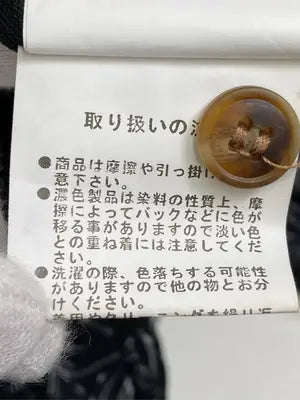 取り扱いの注
●商品は摩擦や引っ掛け
意下さい。
●濃色製品は染料の性質上、摩
擦によってバックなどに色が
移る事がありますので淡い色
との重ね着には注意してくだ
さい。
●洗濯の際、色落ちする可能性
がありますので他の物とお分
けください。